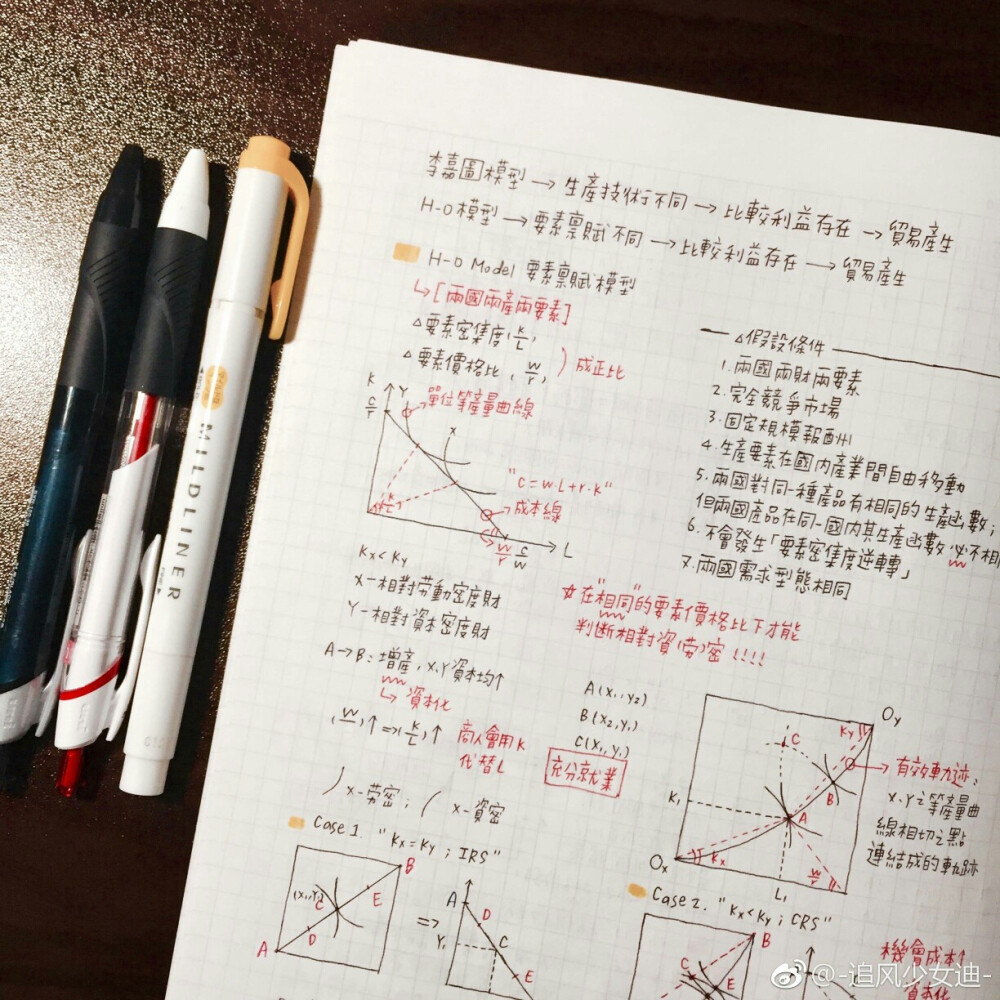 李嘉圖模型 → 生產技術不同 → 比較利益存在 → 貿易產生
H-O模型 → 要素禀賦不同 → 比較利益存在 → 貿易產生
H-O Model 要素禀賦模型
↳ [兩國兩產兩要素]
△要素密集度(K/L)
△要素價格比, (w/r)
) 成正比
K
c/r
Y
單位等產量曲線
x
"C=w·L+r·k"
成本線
(k/L)
w/r
c/w
L
Kx<Ky
x-相對劳動密度財
Y-相對資本密度財
A→B: 增產, x、Y資本均↑
↳ 資本化
(w/r)↑ => (k/L)↑
商人會用K
代替L
x-劳密;
x-資密
△假設條件
1.兩國兩財兩要素
2.完全競爭市場
3.固定規模報酬
4.生產要素在國內產業間自由移動
5.兩國對同一種產品有相同的生產函數;
但兩國產品在同一國內其生產函數必不相
6.不會發生「要素密集度逆轉」
7.兩國需求型態相同
在"相同"的要素價格比下才能
判斷相對資(劳)密!!!!
A(x1,y2)
B(x2,y1)
C(x1,y1)
充分就業
Oy
Ky
C
B
A
K1
Kx
Ox
L1
w/r
有效軌跡:
x、Y之等產量曲
線相切之點
連結成的軌跡
Case 1. "Kx=Ky ; IRS"
B
(x1,y1)
C
E
D
A
=>
A
D
Y1
C
E
Case 2. "Kx<Ky ; CRS"
B
C
E
機會成本↑
資本化
MILDLINER
@-追风少女迪-